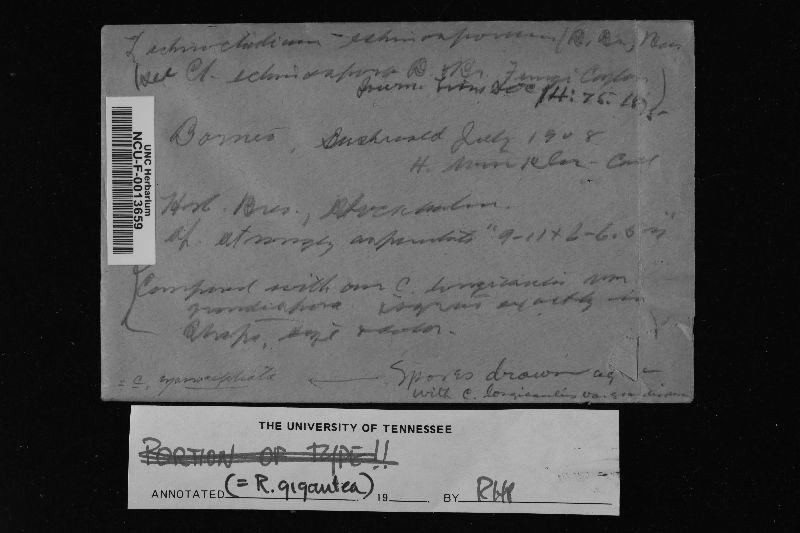 echinosporum (B. & Br.)
(see Cl. echinospora B. & Br. Fungi Ceylon
Journ. Linn. Soc. 14: 75. 1875)
Borneo, July 1908
H. Winkler - Coll
Herb. Bres., Stockholm.
Sp. strongly asperulate "9-11 x 6-6.5 µ"
Compared with our C. longicaulis var
grandispora exactly in
shape, size & color.
= C. cyanocephala ← Spores drawn
with C. longicaulis var. grandispora
UNC Herbarium
NCU-F-0013659
THE UNIVERSITY OF TENNESSEE
PORTION OF TYPE!!
(= R. gigantea)
ANNOTATED 19 BY RHP